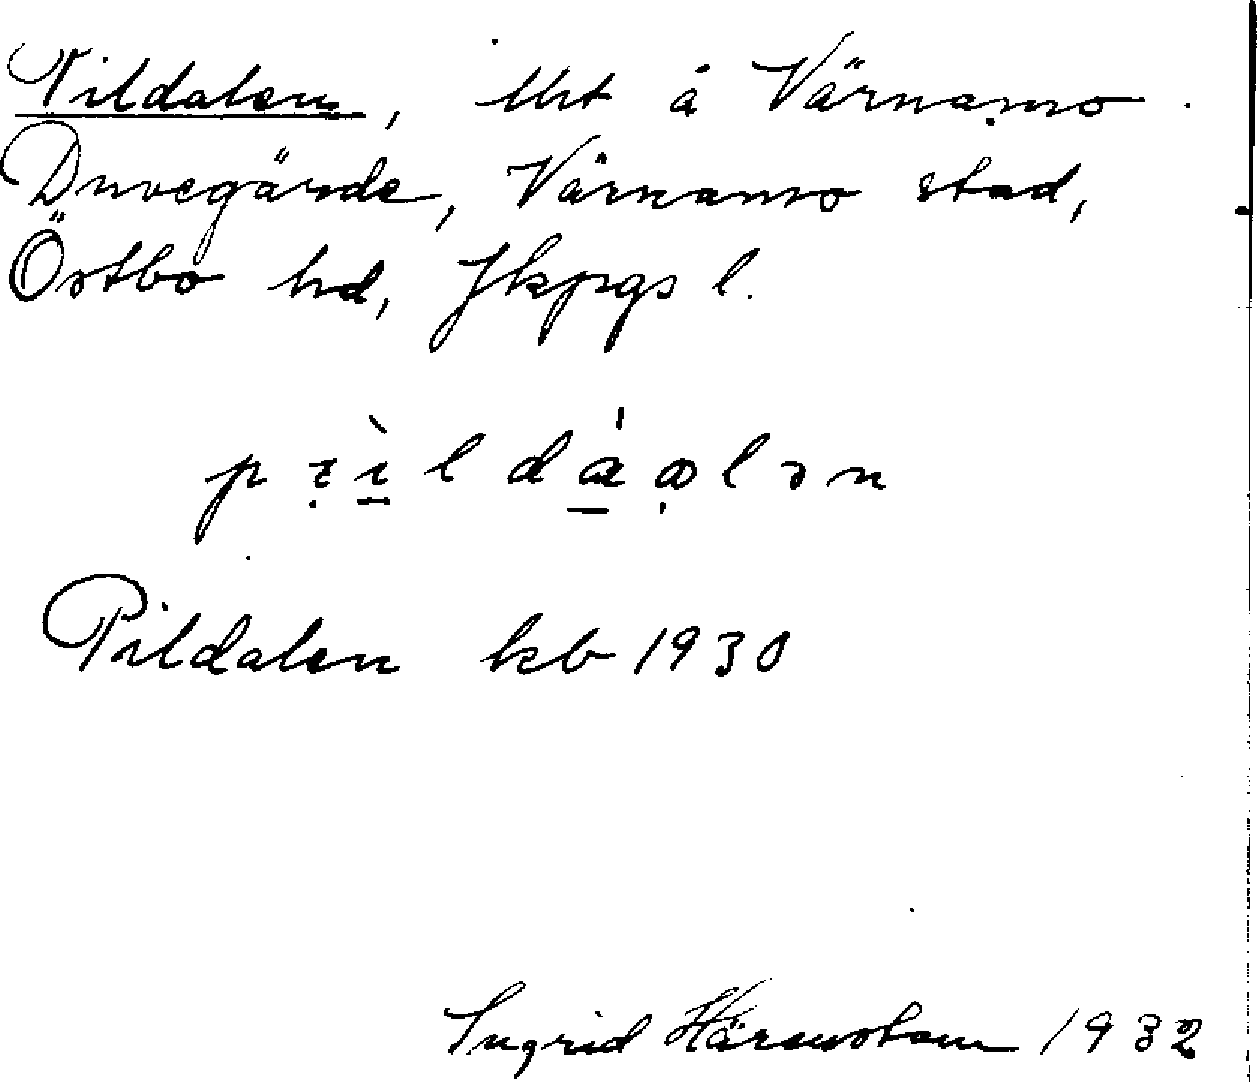 Pildalen, lht å Värnamo
Duvegärde, Värnamo stad,
Östbo hd, Jkpgs l.
Pildalen kb 1930
Ingrid 1932